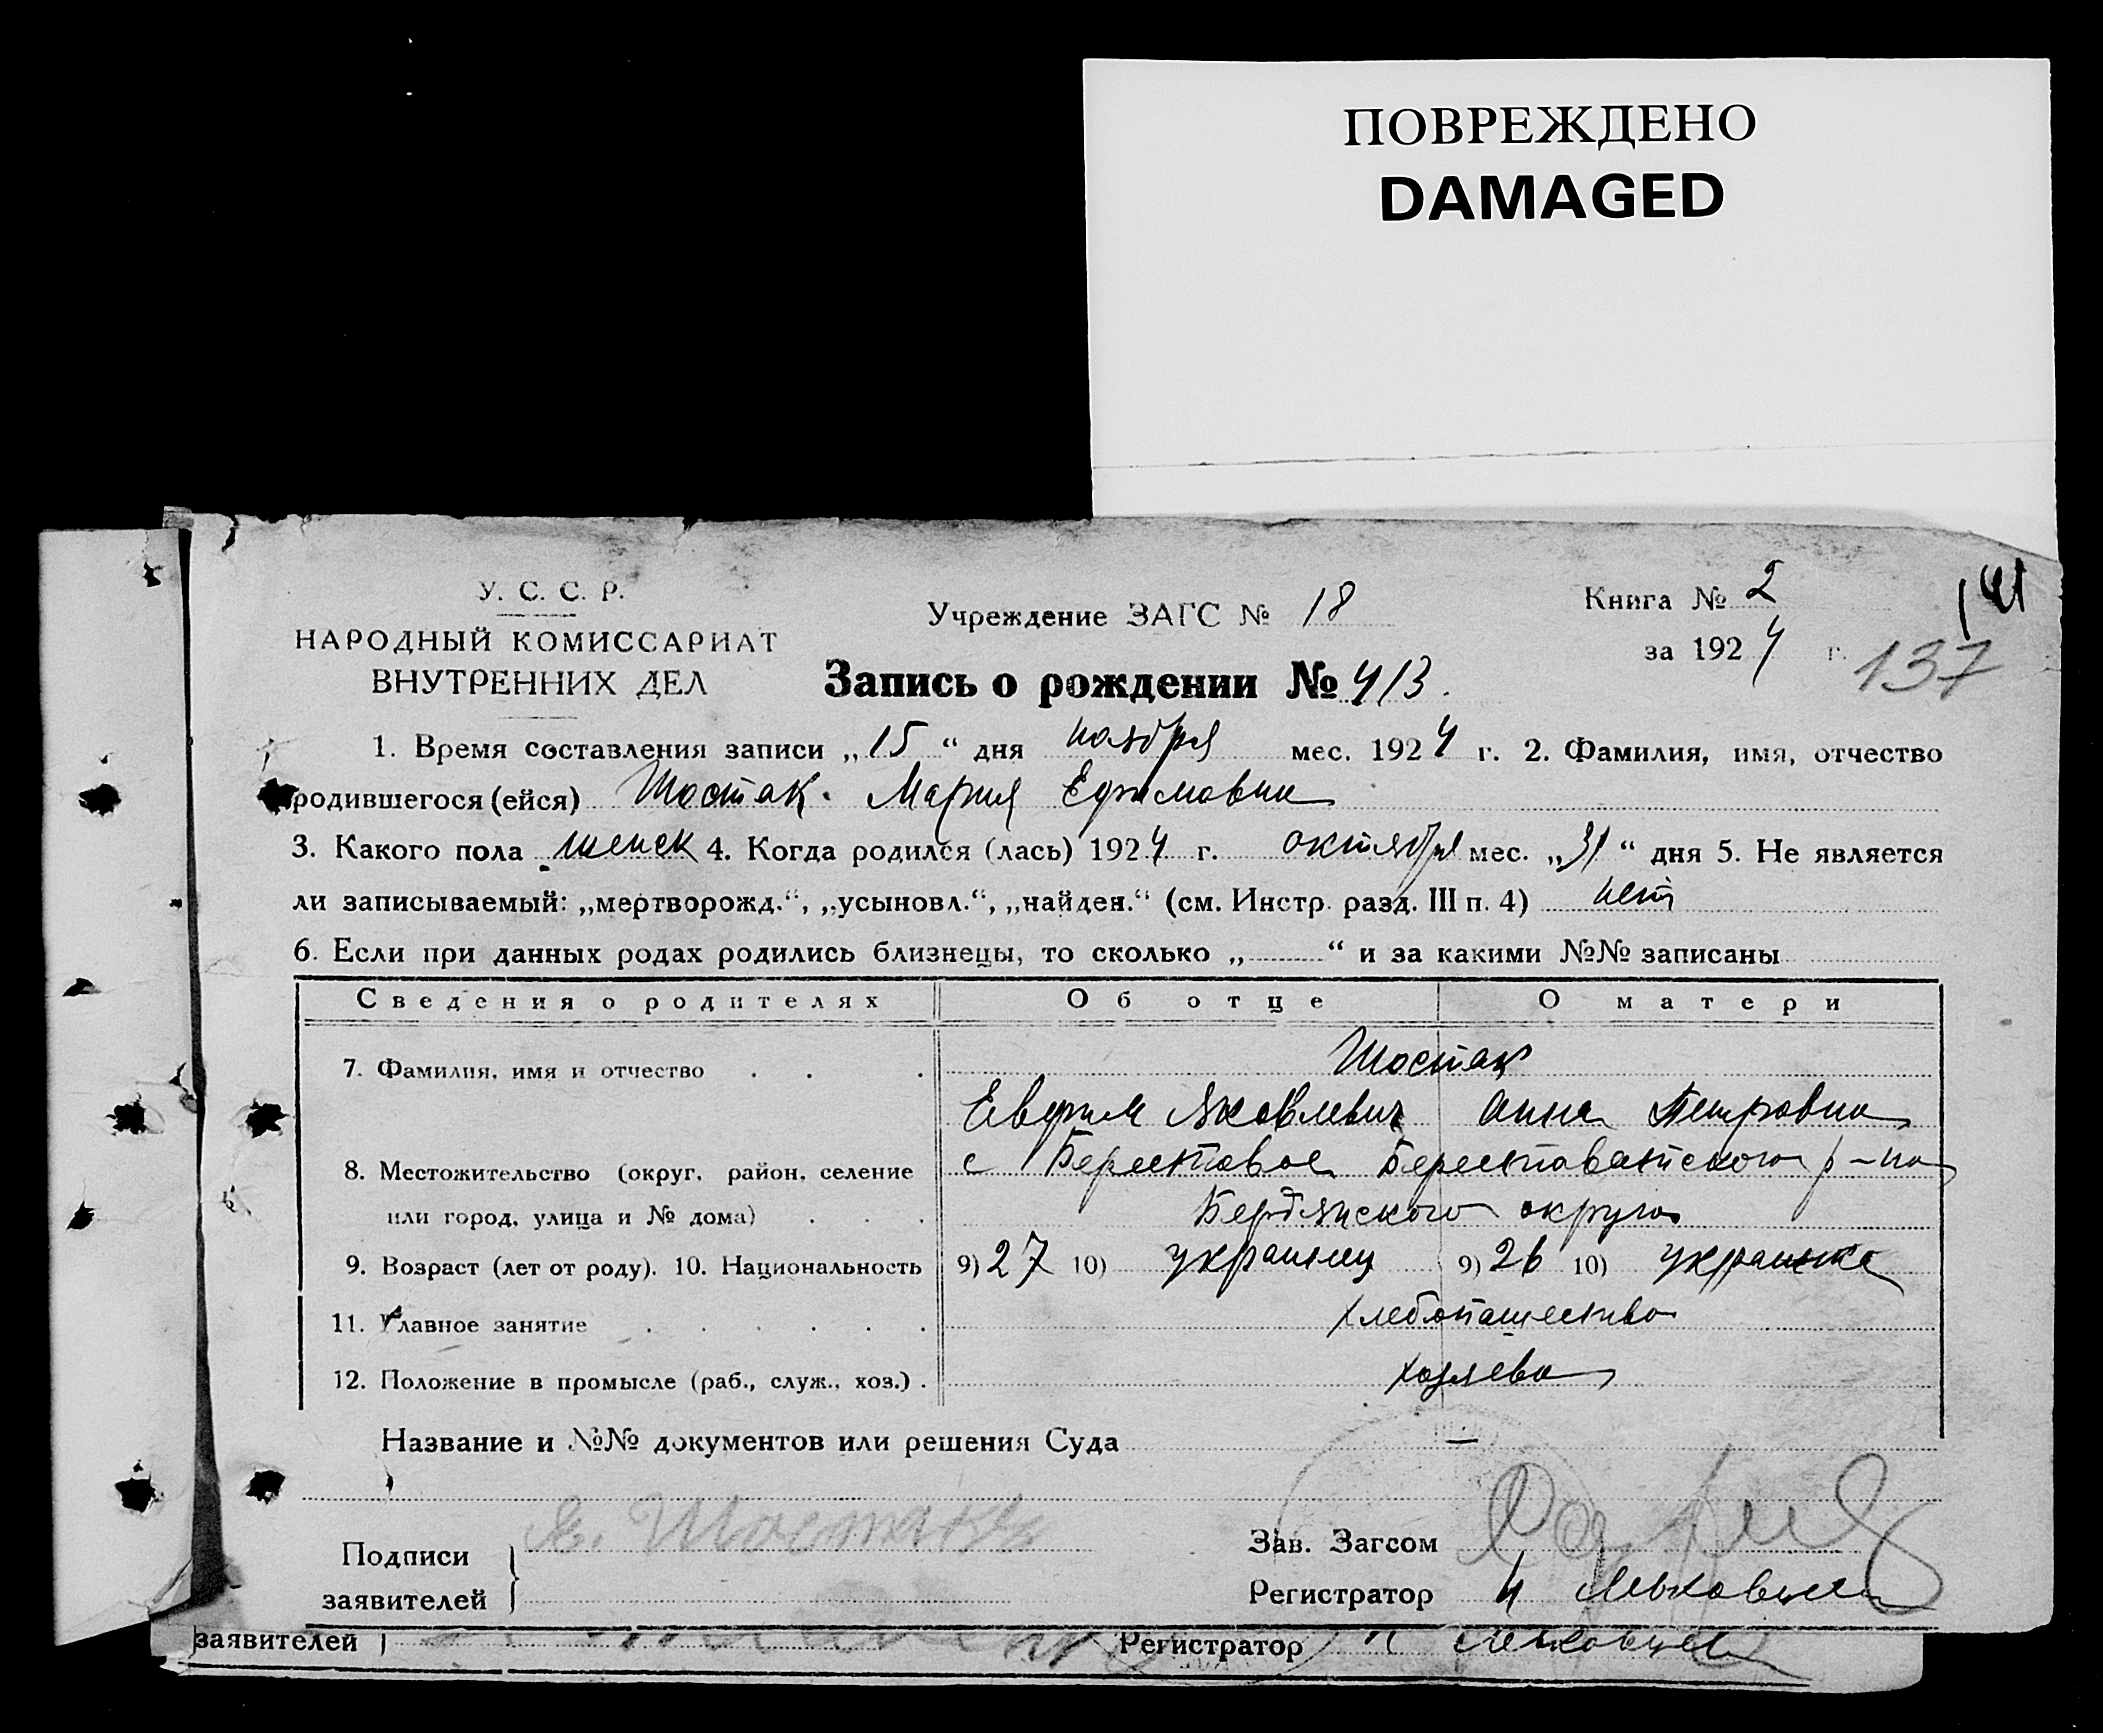 ПОВРЕЖДЕНО
DAMAGED
У. С. С. Р.
НАРОДНЫЙ КОМИССАРИАТ
ВНУТРЕННИХ ДЕЛ
Учреждение ЗАГС № 18
Книга № 2
141
за 1924 г.
137
Запись о рождении № 413.
1. Время составления записи „15“ дня ноября мес. 1924 г. 2. Фамилия, имя, отчество
родившегося (ейся) Шостак Мария Ефимовна
3. Какого пола женск 4. Когда родился (лась) 1924 г. октября мес. „31“ дня 5. Не является
ли записываемый: „мертворожд.“, „усыновл.“, „найден.“ (см. Инстр. разд. III п. 4) нет
6. Если при данных родах родились близнецы, то сколько „ “ и за какими №№ записаны
Сведения о родителях Об отце О матери
7. Фамилия, имя и отчество . . . Шостак
Евфим Яковлевич Анна Петровна
8. Местожительство (округ, район, селение с Берестовое Берестоватского р-на
или город, улица и № дома) . . . Бердянского округа
9. Возраст (лет от роду). 10. Национальность 9) 27 10) украинец 9) 26 10) украинка
11. Главное занятие . . . . . . хлебопашество
12. Положение в промысле (раб., служ., хоз.) . хозяева
Название и №№ документов или решения Суда —
Подписи
заявителей
Е. Шостак
Зав. Загсом
Регистратор
заявителей Регистратор